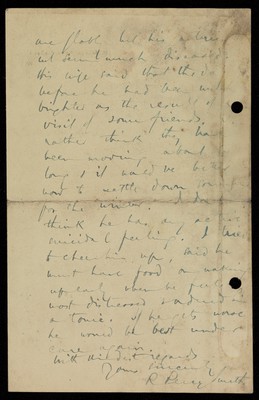 are flabby but his
isn't much diseased
His wife said that this
before he had been much
brighter as the result of
visit of some friends.
rather think they have
been moving about
long & it would be
now to settle down
for the winter. I don't
think he has an active
suicidal feeling. I tried
to cheer him up, said he
must have food on waking
up early when he feels
most distressed & ordered
a tonic. If he gets worse
he would be best under
care again.
With kindest regards
Yours sincerely
R Percy Smith